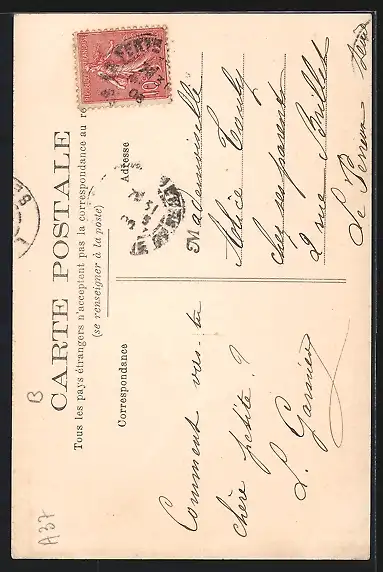 CARTE POSTALE
Tous les pays étrangers n'acceptent pas la correspondance au re
(se renseigner à la poste)
Correspondance
Adresse
Comment vas-tu
chère petite ?
L. Garnier
Mademoiselle
Alice
chez ses parents
2 rue
Le Perreux Seine
10
B
A37